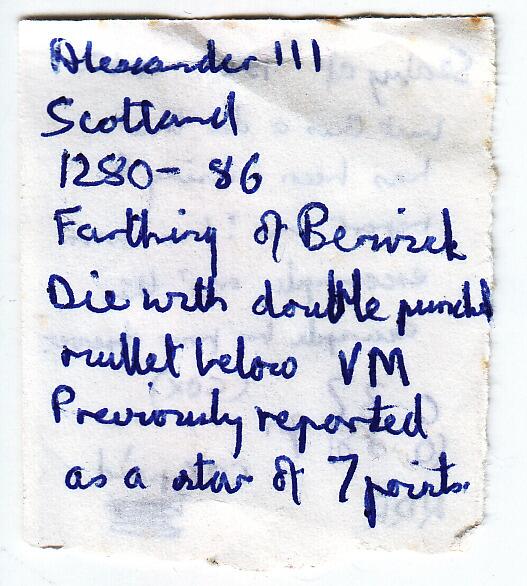 Alexander III
Scotland
1280-86
Farthing of Berwick
Die with double punched
mullet below VM
Previously reported
as a star of 7 points.